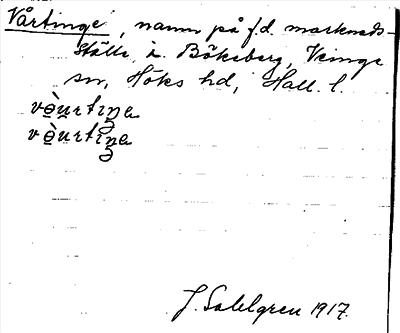 Vårtinge, namn på f.d. marknads-
ställe i Bökeberg, Veinge
sn, Höks hd, Hall. l.
vèu̯rtiŋa
vèu̯rtiŋa
J. Sahlgren 1917.